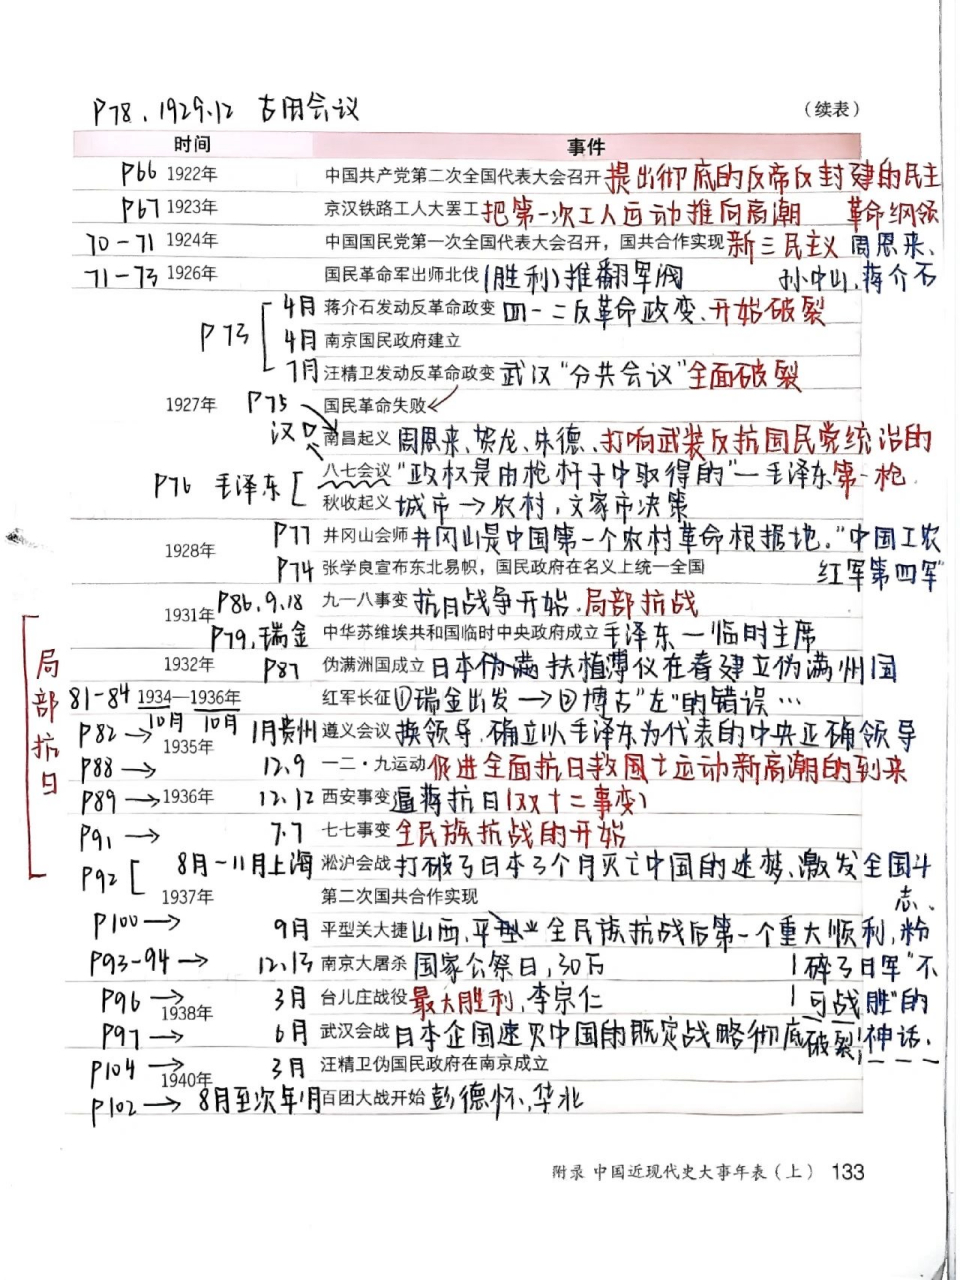 P78、1929.12 古田会议 （续表）
时间 事件
P66 1922年 中国共产党第二次全国代表大会召开 提出彻底的反帝反封建的民主
P67 1923年 京汉铁路工人大罢工 把第一次工人运动推向高潮 革命纲领
70-71 1924年 中国国民党第一次全国代表大会召开，国共合作实现 新三民主义 周恩来、
71-73 1926年 国民革命军出师北伐 (胜利)推翻军阀 孙中山、蒋介石
4月 蒋介石发动反革命政变 四一二反革命政变、开始破裂
P73 4月 南京国民政府建立
7月 汪精卫发动反革命政变 武汉“分共会议”全面破裂
1927年 P75 国民革命失败
汉口 南昌起义 周恩来、贺龙、朱德、打响武装反抗国民党统治的
八七会议 “政权是由枪杆子中取得的”—毛泽东 第一枪
P76 毛泽东 秋收起义 城市→农村，文家市决策
P77 井冈山会师 井冈山是中国第一个农村革命根据地。“中国工农
1928年
P74 张学良宣布东北易帜，国民政府在名义上统一全国 红军第四军”
P86、9.18 九一八事变 抗日战争开始、局部抗战
1931年
P79、瑞金 中华苏维埃共和国临时中央政府成立 毛泽东—临时主席
局部抗日
1932年 P87 伪满洲国成立 日本伪满扶植溥仪在春建立伪满州国
81-84 1934—1936年 红军长征 ①瑞金出发→②博古“左”的错误…
10月 10月
P82→ 1月贵州 遵义会议 换领导、确立以毛泽东为代表的中央正确领导
1935年
P88→ 12.9 一二·九运动 促进全面抗日救国土运动新高潮的到来
P89→ 1936年 12.12 西安事变 逼蒋抗日(双十二事变)
P91→ 7.7 七七事变 全民族抗战的开始
P92 8月-11月上海 淞沪会战 打破了日本3个月灭亡中国的迷梦、激发全国斗
1937年 第二次国共合作实现 志、
P100→ 9月 平型关大捷 山西、平型 全民族抗战后第一个重大顺利，粉
P93-94→ 12.13 南京大屠杀 国家公祭日，30万 碎了日军“不
P96→ 3月 台儿庄战役 最大胜利，李宗仁 可战胜”的
1938年
P97→ 6月 武汉会战 日本企图速灭中国的既定战略彻底破裂 神话、
P104→ 3月 汪精卫伪国民政府在南京成立
1940年
P102→ 8月至次年1月 百团大战开始 彭德怀，华北
附录 中国近现代史大事年表（上） 133